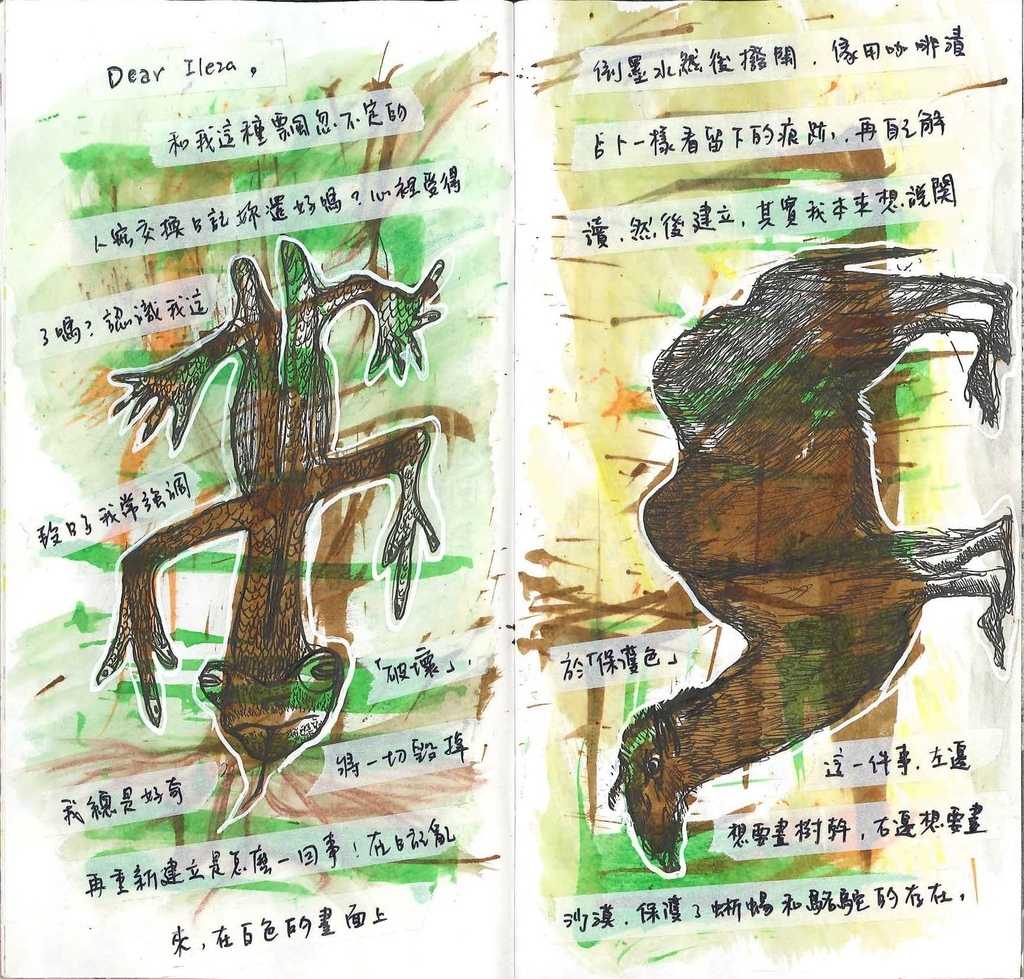 Dear Ileza,
和我這種飄忽不定的
人寫交換日記妳還好嗎?心裡覺得
了嗎?認識我這
我常強調
「破壞」,
將一切毀掉
我總是好奇
再重新建立是怎麼一回事!在日記亂
來,在白色的畫面上
倒墨水然後撥開,像用咖啡漬
占卜一樣看留下的痕跡,再自己解
讀,然後建立,其實我本來想說關
於「保護色」
這一件事,左邊
想要畫樹幹,右邊想要畫
沙漠,保護了蜥蜴和駱駝的存在,